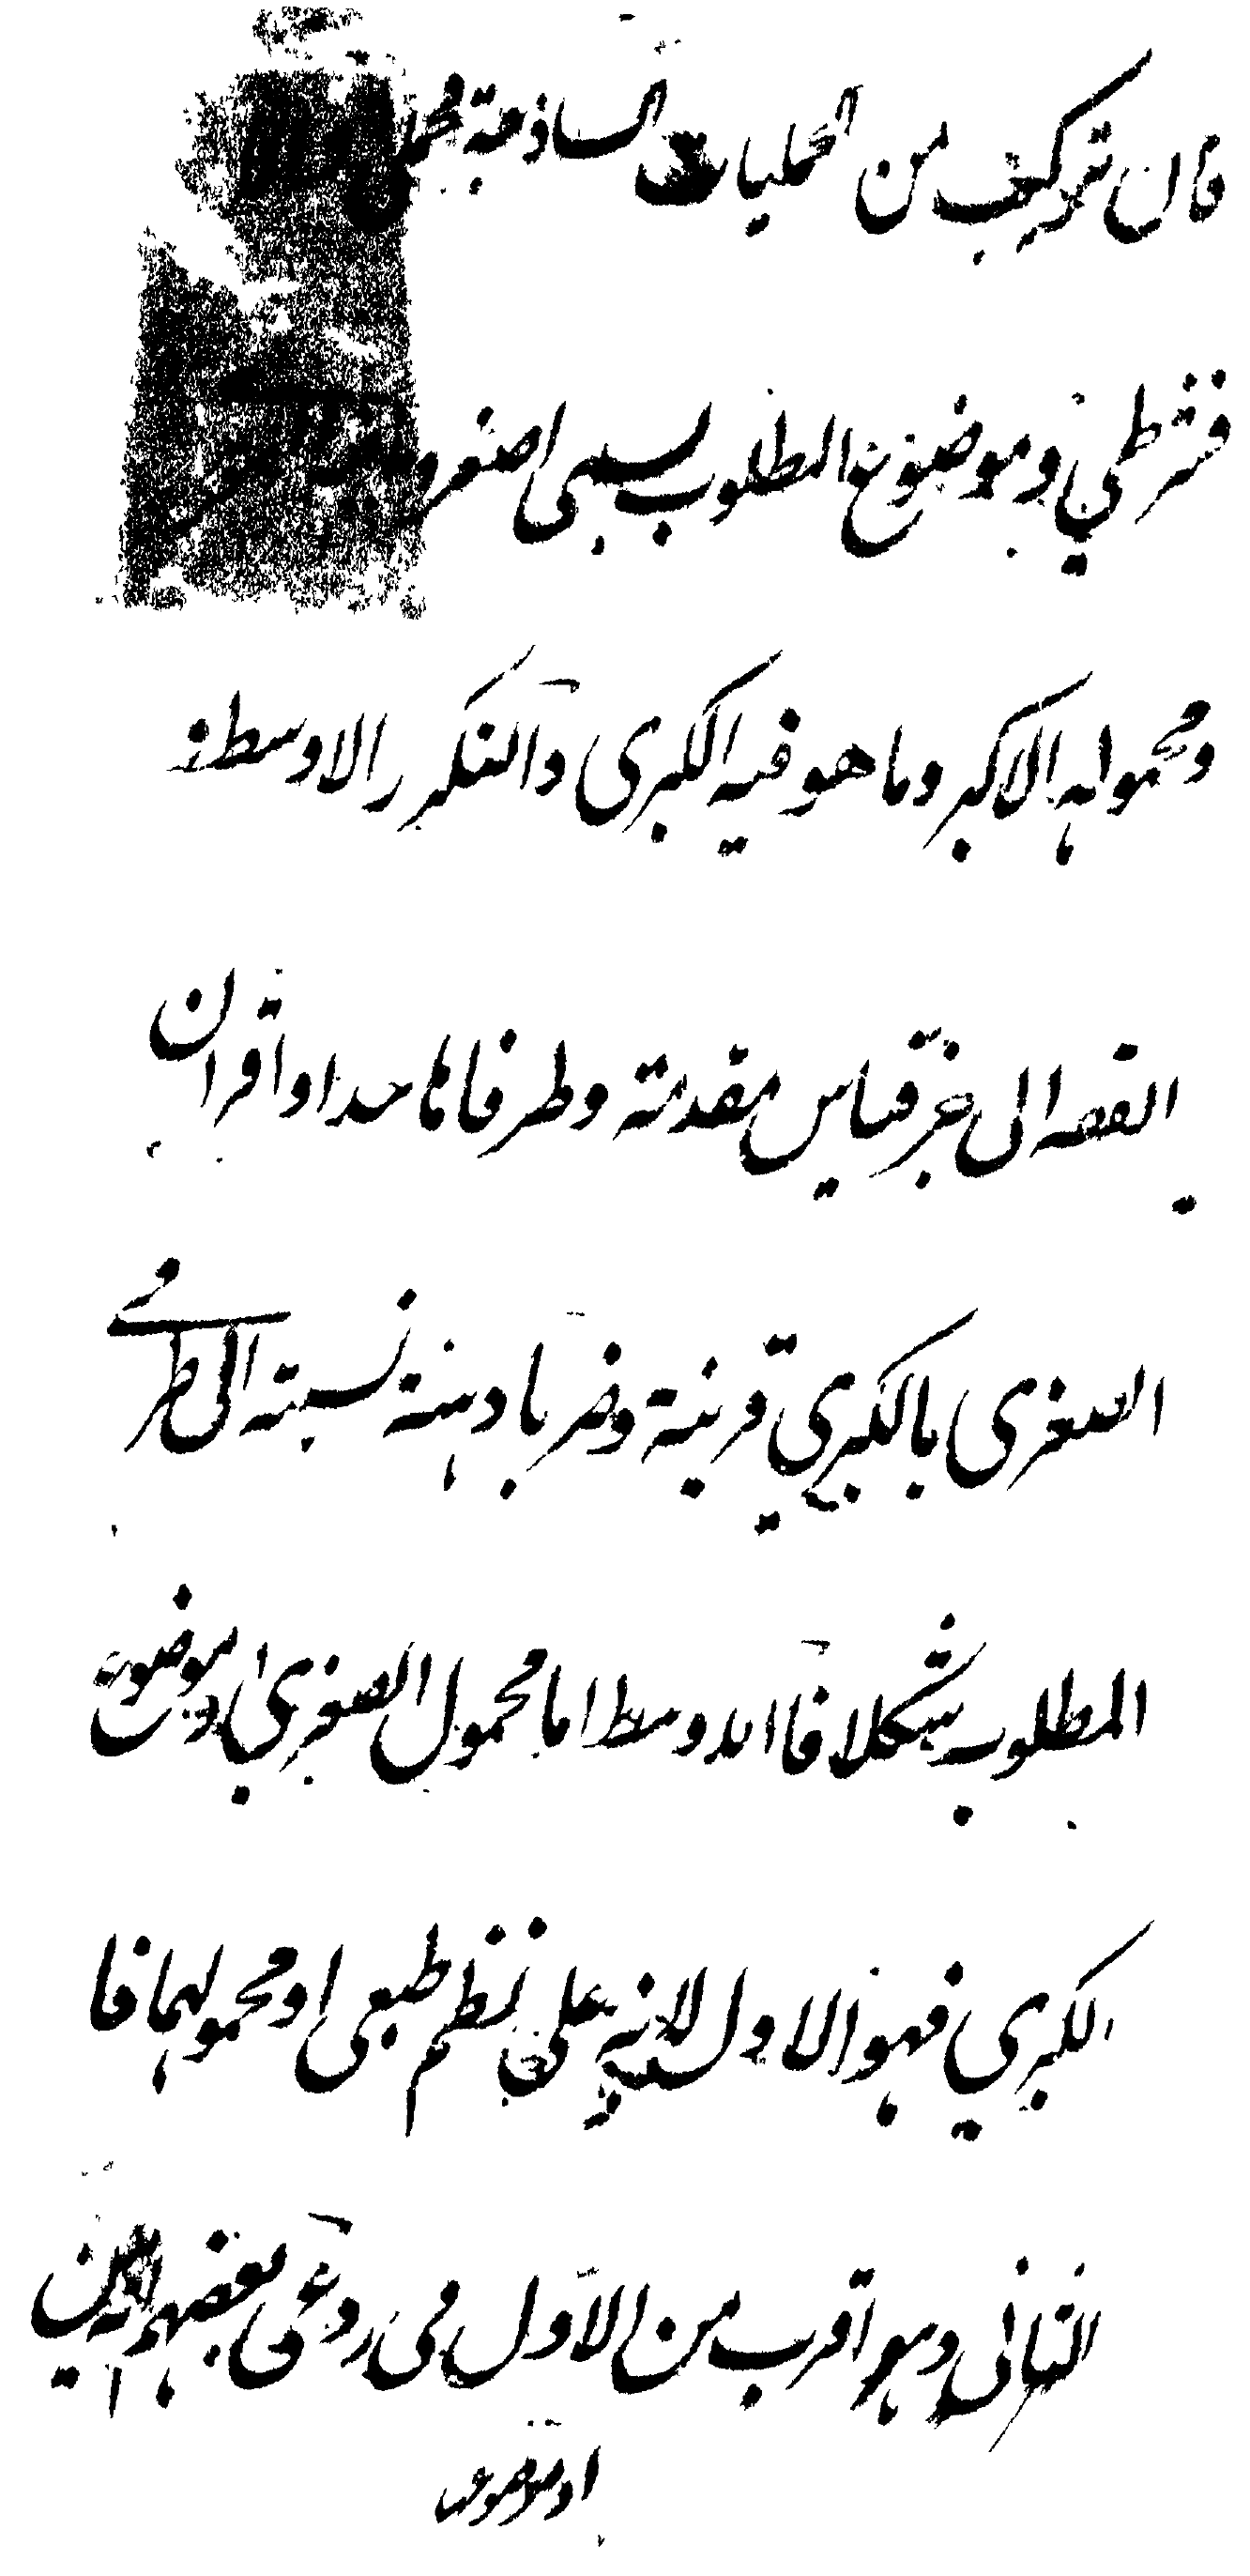 فان تركب من الحمليات الساذجة فحملي والا
فشرطي وموضوع المطلوب يسمى اصغر و
ومحموله الاكبر وما هو فيه الكبرى والمتكرر الاوسط
القصه الى جز قياس مقدمة وطرفاها حدا واقران
الصغرى بالكبرى قرينة وضربا وهيئة نسبته الى طرفي
المطلوب شكلا فالاوسط اما محمول الصغرى وموضوع
الكبرى فهو الاول لانه على نظم طبعي او محمولهما فا
الثاني وهو اقرب من الاول في بعضهم انه بين
او موضوعهما